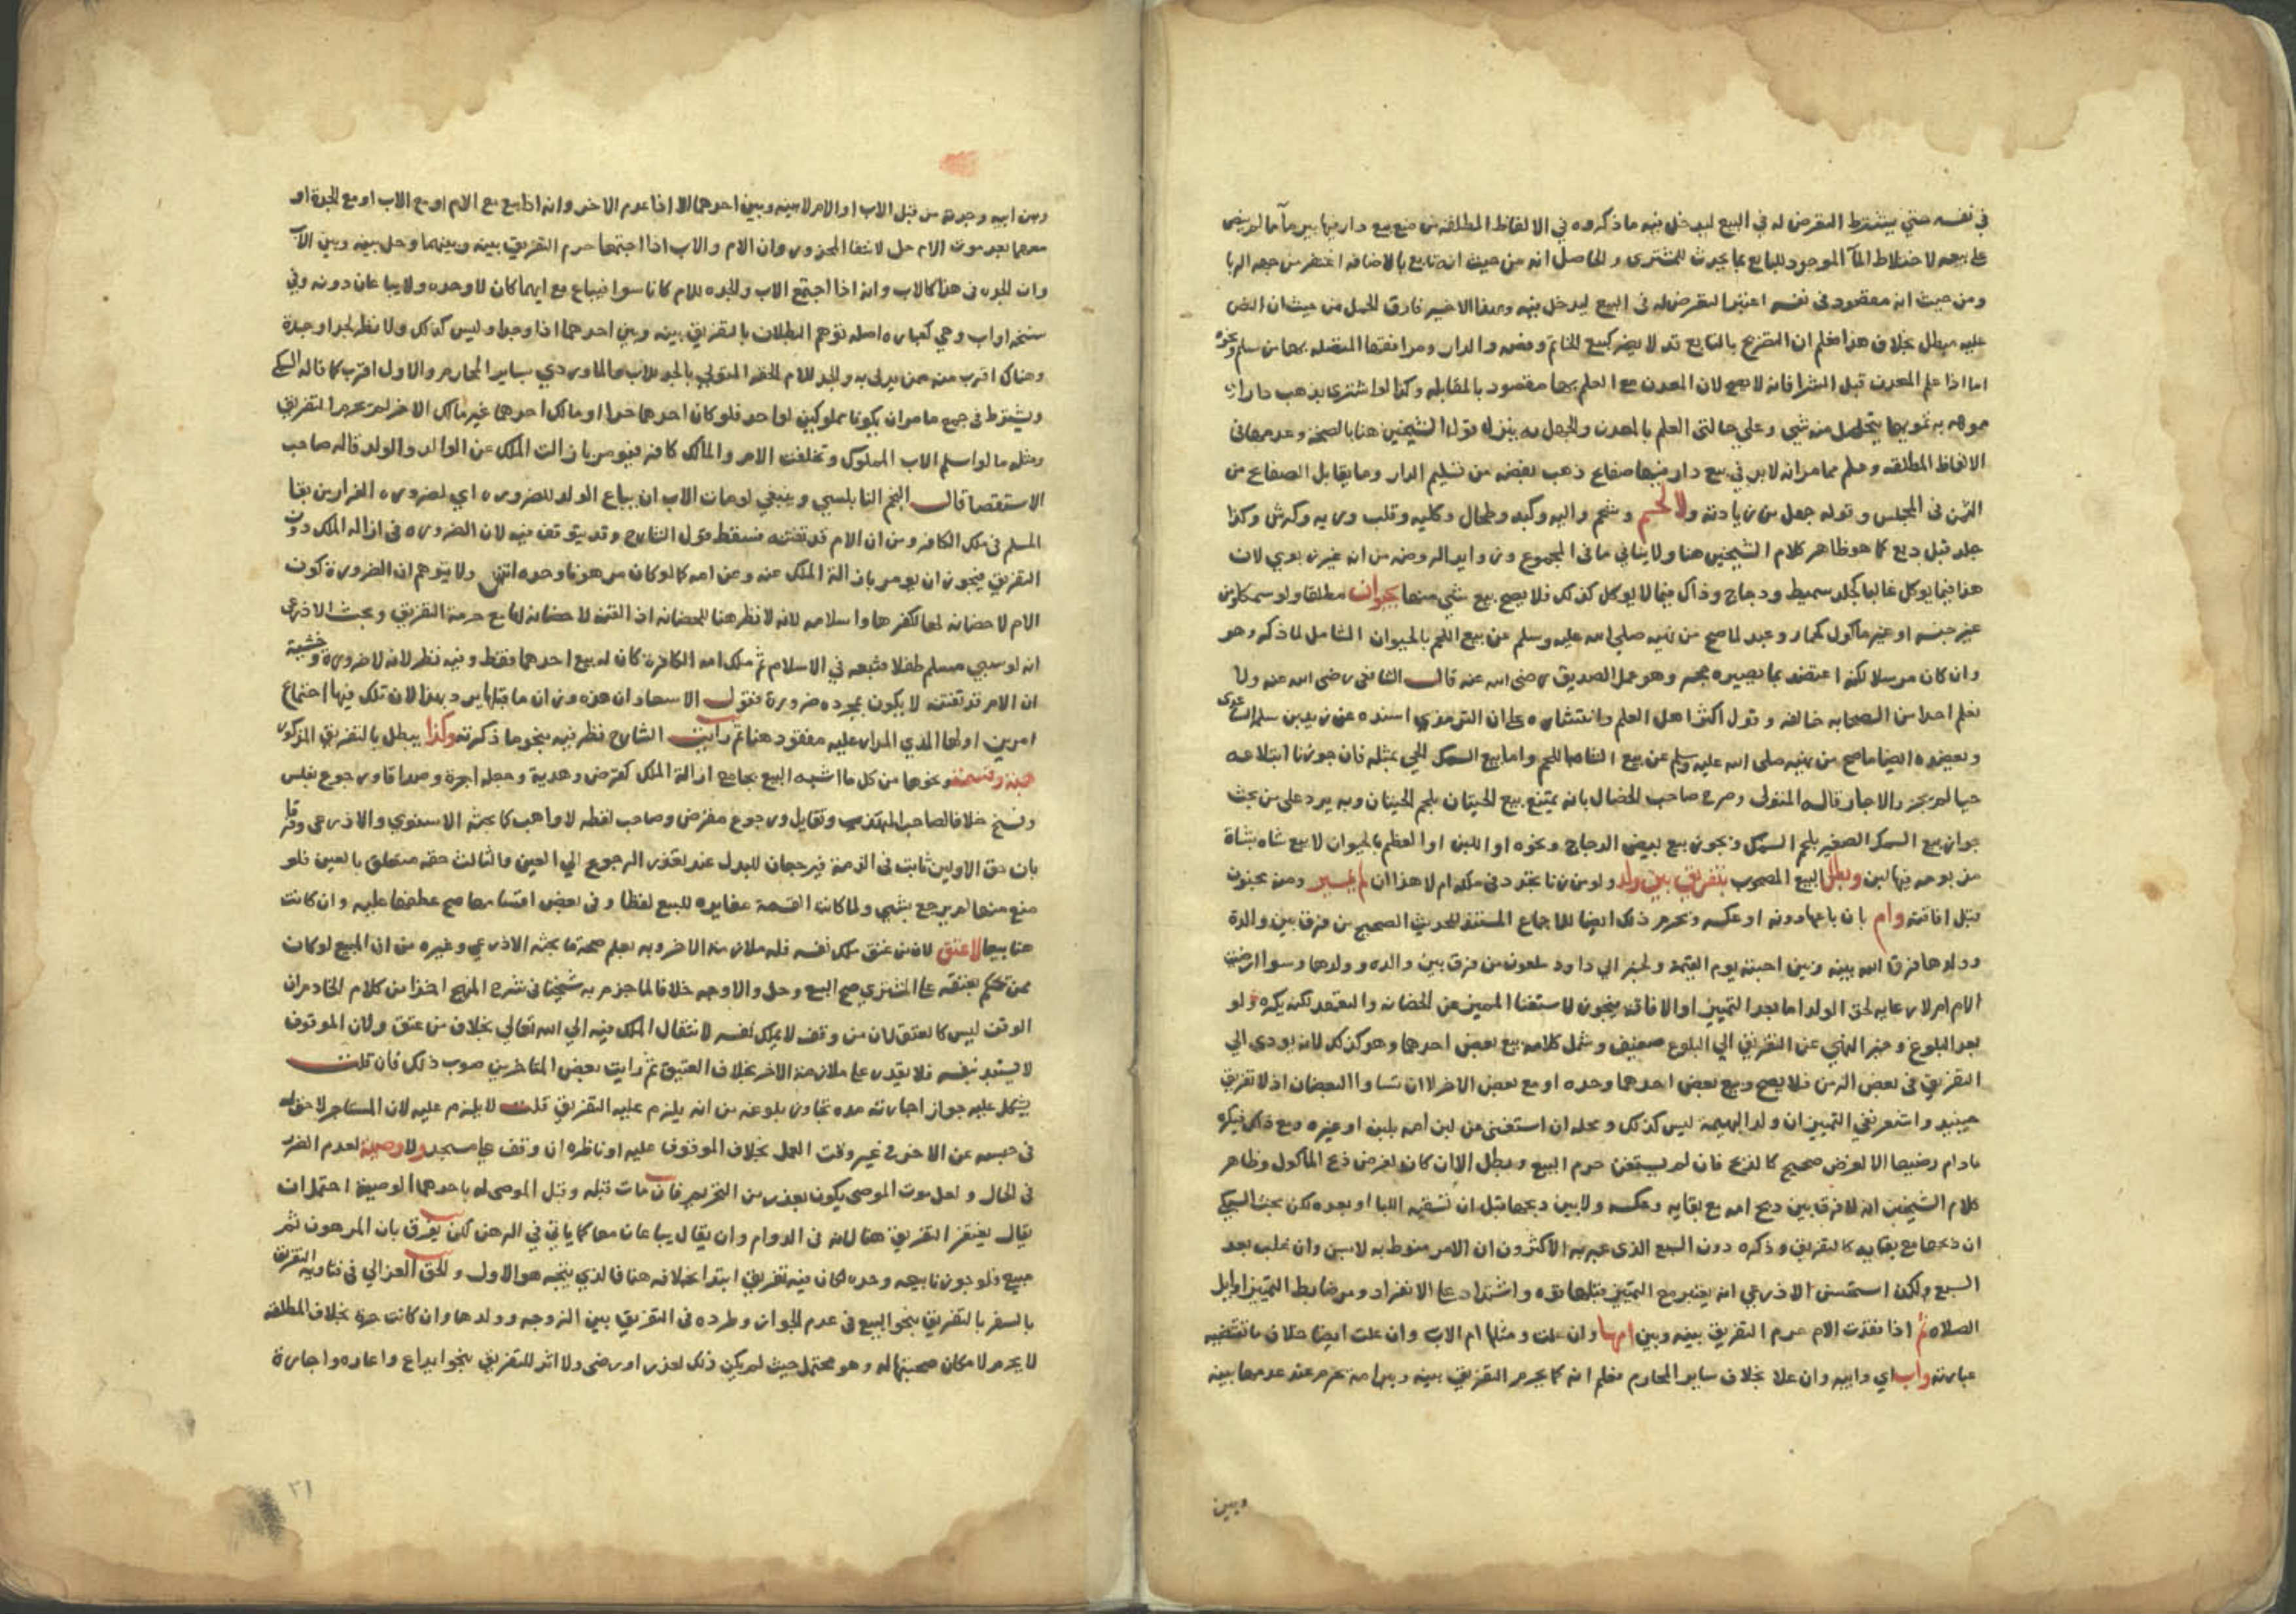 في نفسه حتي يشترط التعرض له في البيع ليدخل فيه ما ذكروه في الالفاظ المطلقه من منع بيع دار فيها بير مآ ما لم ينص
علي بيعه لاختلاط المآ الموجود للبايع بما يحدث للمشتري والحاصل انه من حيث انه تابع بالاضافه اغتفر من جهه الربا
ومن حيث انه مقصود في نفسه اعتبر التعرض له في البيع ليدخل فيه وبهذا الاخير فارق الحمل من حيث ان النص
عليه مبطل بخلاف هذا فعلم ان التصريح بالتابع قد لا يضر كبيع الخاتم وفصه والدار ومرافقها المتصله بها من سلم ونحوه
اما اذا علم المعدن قبل الشرا فانه لا يصح لان المعدن مع العلم بها مقصود بالمقابله وكذا لو اشتري بذهب دارا
موهه به تمويها يتحصل منه شي وعلي حالتي العلم بالمعدن والجهل به ينزل قول الشيخين هنا بالصحه وعدمها في
الالفاظ المطلقه وعلم مما مر انه لا بد في بيع دار فيها صفايح ذهب بفضه من تسليم الدار وما يقابل الصفايح من
الثمن في المجلس وقوله جعل من زيادته ولا لحم وشحم واليه وكبد وطحال وكليه وقلب وريه وكرش وكذا
جلد قبل دبغ كما هو ظاهر كلام الشيخين هنا ولا ينافي ما في المجموع وزوايد الروضه من انه غير ربوي لان
هذا فيما يوكل غالبا كجلد سميط ودجاج وذاك فيما لا يوكل كذلك فلا يصح بيع شي منها بحيوان مطلقا ولو سمكا ومن
غير جنسه او غير ماكول كحمار وعبد لما صح من نهيه صلي الله عليه وسلم عن بيع اللحم بالحيوان الشامل لما ذكر وهو
وان كان مرسلا لكنه اعتضد بما يصيره حجه وهو عمل الصديق رضي الله عنه قال الشافعي رضي الله عنه ولا
نعلم احدا من الصحابه خالفه وقول اكثر اهل العلم وانتشاره علي ان الترمذي اسنده عن زيد بن سلمه الساعدي
وبعضده ايضا ما صح من نهيه صلي الله عليه وسلم عن بيع الشاه باللحم واما بيع السمك الحي بمثله فان جوزنا ابتلاعه
حيا لم يجز والا جاز قاله المتولي وصرح صاحب الخصال بانه يمتنع بيع الحيتان بلحم الحيتان وبه يرد علي من بحث
جواز بيع السمك الصغير بلحم السمك ويجوز بيع بيض الدجاج ونحوه او اللبن او العظم بالحيوان لا بيع شاه بشاة
من نوعه فيها لبن وبطل البيع المصحوب بتفريق بين ولد ولو من زنا تجدد في ملكه ام لا هذا ان لم يميز ومنه مجنون
قبل افاقته وام بان باعها دونه او عكسه وتحرم ذلك ايضا للاجماع المستند للحديث الصحيح من فرق بين والدة
وولدها فرق الله بينه وبين احبته يوم القيمة ولخبر ابي داود ملعون من فرق بين والده وولدها وسوا ارضيت
الام ام لا رعايه لحق الولد اما بعد التمييز او الافاقه فيجوز لاستغنا المميز عن الحضانه والتعهد لكنه يكره ولو
بعد البلوغ وخبر النهي عن التفريق الي البلوغ ضعيف وشمل كلامه بيع بعض احدهما وهو كذلك لانه يودي الي
التفريق في بعض الزمن فلا يصح وبيع بعض احدهما وحده او مع بعض الاخر لا ان تساوا البعضان اذ لا تفريق
حينيذ واشعر بنفي التمييز ان ولد البهيمة ليس كذلك ومحله ان استغني عن لبن امه بلبن او غيره ومع ذلك فيكره
مادام رضيعا الا لغرض صحيح كالذبح فان لم يستغن حرم البيع وبطل الا ان كان لغرض ذبح الماكول وظاهر
كلام الشيخين انه لا فرق بين ذبح امه مع بقايه وعكسه ولا بين ذبحها قبل ان تسقيه اللبا او بعده لكن بحث السبكي
ان ذبحها مع بقايه كالتفريق وذكره دون السبع الذي عبر به الاكثرون ان الامر منوط به لا بسن وان غلب بعد
السبع ولكن استحسن الاذرعي انه يعتبر مع التمييز قبلها نوع واشتداد علي الانفراد ومر ضابط التمييز اوايل
الصلاه ثم اذا فقدت الام حرم التفريق بينه وبين امها وان علت ومثلها ام الاب وان علت ايضا خلاف ما تقتضيه
عبارته واب اي وابيه وان علا بخلاف ساير المحارم فعلم انه كما يحرم التفريق بينه وبين امه تحرم عند عدمها بينه
وبين
وبين ابيه وجدته من قبل الاب او الام لا بينه وبين احدهما الا اذا عدم الاخر وانه اذا بيع مع الام او مع الاب او مع الجدة او
معهما بعد موت الام حل لانتفا المحذور وان الام والاب اذا اجتمعا حرم التفريق بينه وبينهما وحل بينه وبين الاب
وان الجده في هذا كالاب وانه اذا اجتمع الاب والجده للام كانا سوا فيباع مع ايهما كان لا وحده ولا يباعان دونه وفي
نسخه اواب وهي كعباره اصله توهم البطلان بالتفريق بينه وبين احدهما اذا وجدا وليس كذلك ولا نظر لجد او جدة
وهناك اقرب منه ممن يدلي به والجد للام الحقه المتولي بالجد للاب والماوردي بساير المحارم والاول اقرب كما قاله السبكي
ويشترط في جميع ما مر ان يكونا مملوكين لواحد فلو كان احدهما حرا او مالك احدهما غير مالك الاخر لم يحرم التفريق
ومثله ما لو اسلم الاب المملوك وتخلفت الام والمالك كافر فيومر بازالت الملك عن الوالد والولد قاله صاحب
الاستقصا قال النجم النابلسي وينبغي لو مات الاب ان يباع الولد للضروره اي لضروره الفرار من بقا
المسلم في ملك الكافر ومن ان الام قد تفتنه فسقط قول الشارح وقد يتوقف فيه لان الضروره في ازاله الملك دون
التفريق فيجوز ان يومر بازالة الملك عنه وعن امه كما لو كان مرهونا وحده انتهي ولا يتوهم ان الضرورة كون
الام لا حضانه لها لكفرها واسلامه لانه لا نظر هنا للحضانه اذ القنه لا حضانه لها مع حرمة التفريق وبحث الاذرعي
انه لو سبي مسلم طفلا فتبعه في الاسلام ثم ملك امه الكافرة كان له بيع احدهما فقط وفيه نظر لانه لا ضروره وخشية
ان الام قد تفتنه لا يكون بمجرده ضرورة فقول الاسعاد ان هذه وزان ما قبلها يرد بهذا لان تلك فيها اجتماع
امرين اولهما الذي المدار عليه مفقود هنا ثم رايت الشارح نظر فيه بنحو ما ذكرته وكذا يبطل بالتفريق المذكور
هبة وقسمة ونحوها من كل ما اشبه البيع بجامع ازالة الملك كقرض وهدية وجعله اجرة وصداقا ورجوع بفلس
وفسخ خلافا لصاحب المهذب وتقايل ورجوع مقرض وصاحب لقطه لا واهب كما بحثه الاسنوي والاذرعي وفرقا
بان حق الاولين ثابت في الذمة فيرجعان للبدل عند تعذر الرجوع الي العين والثالث حقه متعلق بالعين فلو
منع منها لم يرجع بشي ولما كانت القسمة مغايره للبيع لفظا وفي بعض اقسامها صح عطفها عليه وان كانت
هنا بيعا لا عتق لان من عتق ملك نفسه فله ملازمة الاخر وبه يعلم صحة ما بحثه الاذرعي وغيره من ان المبيع لو كان
ممن تحكم بعتقه علي المشتري صح البيع وحل والاوجه خلافا لما جزم به شيخنا في شرح المنهج اخذا من كلام الخادم ان
الوقف ليس كالعتق لان من وقف لا يملك نفسه لانتقال الملك فيه الي الله تعالي بخلاف من عتق ولان الموقوف
لا يستبد بنفسه فلا يقدر علي ملازمة الاخر بخلاف العتيق ثم رايت بعض المتاخرين صوب ذلك فان قلت
يشكل عليه جواز اجارته مده تجاوز بلوغه من انه يلزم عليه التفريق قلت لا يلزم عليه لان المستاجر لا حق له
في حبسه عن الاخر في غير وقت العمل بخلاف الموقوف عليه او ناظره ان وقف علي مسجد ولا وصية لعدم الضرر
في الحال ولعل موت الموصي يكون بعد زمن التحريم فان مات قبله وقبل الموصي له باحدهما الوصية احتمل ان
يقال يغتفر التفريق هنا لانه في الدوام وان يقال يباعان معا كما ياتي في الرهن لكن يفرق بان المرهون ثم
مبيع فلو جوزنا بيعه وحده لكان فيه تفريق ابتدا بخلافه هنا فالذي يتجه هو الاول والحق الغزالي في فتاويه التفريق
بالسفر بالتفريق بنحو البيع في عدم الجواز وطرده في التفريق بين الزوجه وولدها وان كانت حرة بخلاف المطلقه
لا يحرم لامكان صحبتها له وهو محتمل حيث لم يكن ذلك لعذر او رضي ولا اثر للتفريق بنحو ايداع واعاره واجارة
٣١